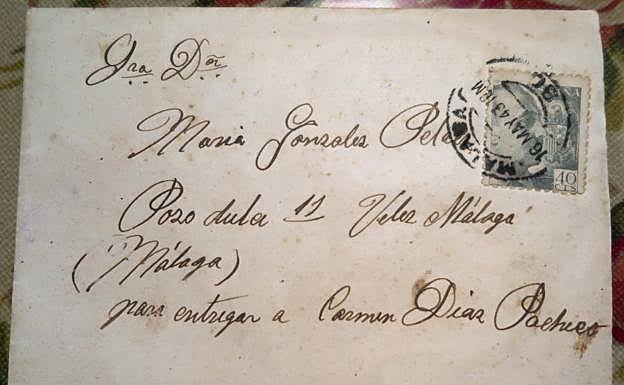 Sra Dña
Maria Gonzalez Pela
Pozo dulce 11 Velez Málaga
(Málaga)
para entregar a Carmen Diaz Pacheco
MALAGA
16 MAY 43 12 M
40